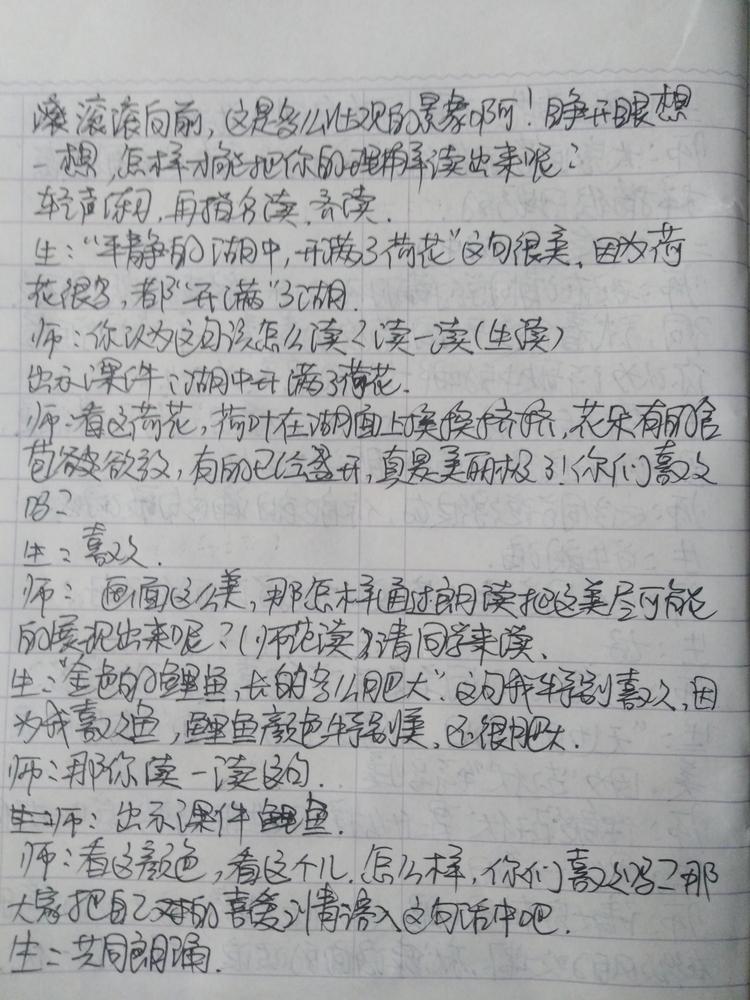 滚滚向前，这是多么壮观的景象啊！睁开眼想
一想，怎样才能把你的理解读出来呢？
轻声练习，再指名读.齐读.
生："平静的湖中，开满了荷花"这句很美，因为荷
花很多，都"开满"了湖.
师：你认为这句该怎么读？读一读(生读)
出示课件：湖中开满了荷花.
师：看这荷花，荷叶在湖面上挨挨挤挤，花朵有的含
苞欲放，有的已经盛开，真是美丽极了！你们喜欢
吗？
生：喜欢.
师： 画面这么美，那怎样通过朗读把这美尽可能
的展现出来呢？(师范读)请同学来读.
生："金色的鲤鱼，长的多么肥大".这句我特别喜欢，因
为我喜欢鱼，鲤鱼颜色特别美，还很肥大.
师：那你读一读这句.
师：出示课件 鲤鱼.
师：看这颜色，看这个儿.怎么样，你们喜欢吗？那
大家把自己对的喜爱之情读入这句话中吧.
生：共同朗诵.